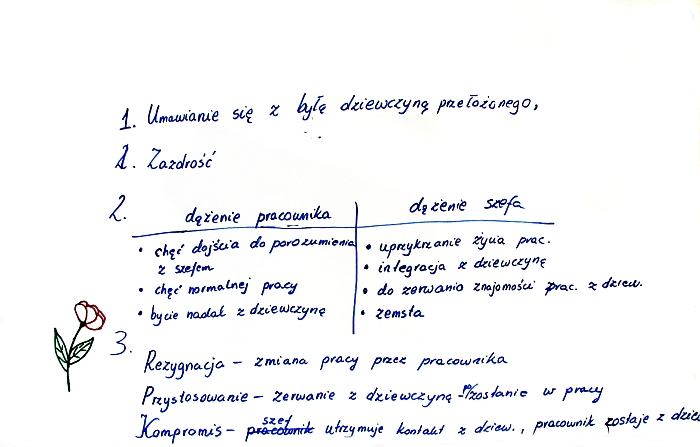 1. Umawianie się z byłą dziewczyną przełożonego,
1. Zazdrość
2.
dążenie pracownika
• chęć dojścia do porozumienia
z szefem
• chęć normalnej pracy
• bycie nadal z dziewczyną
dążenie szefa
• uprzykrzanie życia prac.
• integracja z dziewczyną
• do zerwania znajomości prac. z dziew.
• zemsta
3.
Rezygnacja – zmiana pracy przez pracownika
Przystosowanie – zerwanie z dziewczyną – pozostanie w pracy
szef
Kompromis – pracownik utrzymuje kontakt z dziew., pracownik zostaje z